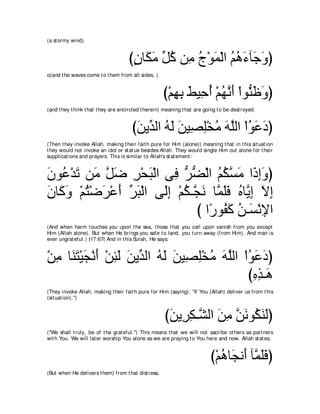 (a stormy wind)
(وَجَآءَهُمُ الْمَوْجُ مِن كُلِّ مَكَانٍ)
o(and the waves come to them from all sides, )
(وَظَنُّواْ أَنَّهُمْ أُحِيطَ بِهِمْ)
(and they think that they are encircled therein) meaning that they are going to be destroyed.
(دَعَوُاْ اللَّهَ مُخْلِصِينَ لَهُ الدِّينَ)
(Then they invoke Allah, making their faith pure for Him (alone)) meaning that in this situation
they would not invoke an idol or statue besides Allah. They would single Him out alone for their
supplications and prayers. This is similar to Allah's statement:
(وَإِذَا مَسَّكُمُ الْضُّرُّ فِى الْبَحْرِ ضَلَّ مَن تَدْعُونَ
إِلاَ إِيَّاهُ فَلَمَّا نَجَّـكُمْ إِلَى الْبَرِّ أَعْرَضْتُمْ وَكَانَ
الإِنْسَـنُ كَفُورًا )
(And when harm touches you upon the sea, those that you call upon vanish from you except
Him (Allah alone). But when He brings you safe to land, you turn away (from Him). And man is
ever ungrateful.) )17:67( And in this Surah, He says:
(دَعَوُاْ اللَّهَ مُخْلِصِينَ لَهُ الدِّينَ لَئِنْ أَنْجَيْتَنَا مِنْ
هَـذِهِ)
(They invoke Allah, making their faith pure for Him (saying): "If You (Allah) deliver us from this
(situation),")
(لَنَكُونَنَّ مِنَ الشَّـكِرِينَ)
("We shall truly, be of the grateful.") This means that we will not ascribe others as partners
with You. We will later worship You alone as we are praying to You here and now. Allah states;
(فَلَمَّآ أَنجَاهُمْ)
(But when He delivers them) from that distress,